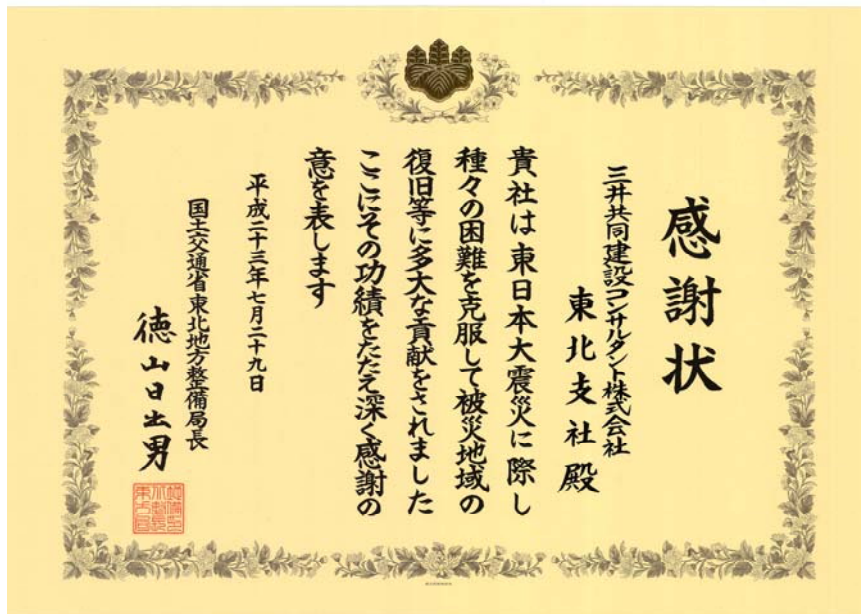 感謝状
三井共同建設コンサルタント株式会社
東北支社殿
貴社は東日本大震災に際し
種々の困難を克服して被災地域の
復旧等に多大な貢献をされました
ここにその功績をたたえ深く感謝の
意を表します
平成二十三年七月二十九日
国土交通省東北地方整備局長
徳山日出男